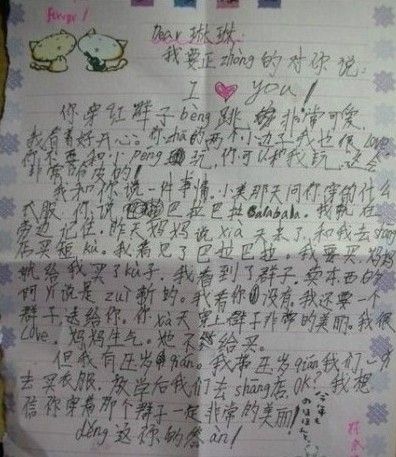 forever!
Dear 琳琳:
我要正zhòng的对你说:
I ♥ you!
你穿红群子bèng跳 非常可爱,
我看着好开心。你zhā的两个小边子我也很Love
你不要和小peng 玩,你可以和我玩,
非常
我和你说一件事情,小美那天问你穿的什么
衣服,你说 巴拉巴拉Balabala。我就在
旁边记住,昨天妈妈说xià天来了,和我去shāng
店买短kù。我看见了巴拉巴拉。我要买妈妈
就给我买了kù子,我看到了群子。卖东西的
阿yí说是zuì新的。我看你 没有。我还要一个
群子送给你,你xià天穿上群子非常的美丽。我很
Love。妈妈生气。她不 给买。
但我有压岁qián。我带压岁qián我们
去买衣服,放学后我们去shāng店OK?我想
信你穿着那个群子一定非常的美丽!
děng这你的答àn!
今年も
のほほんと